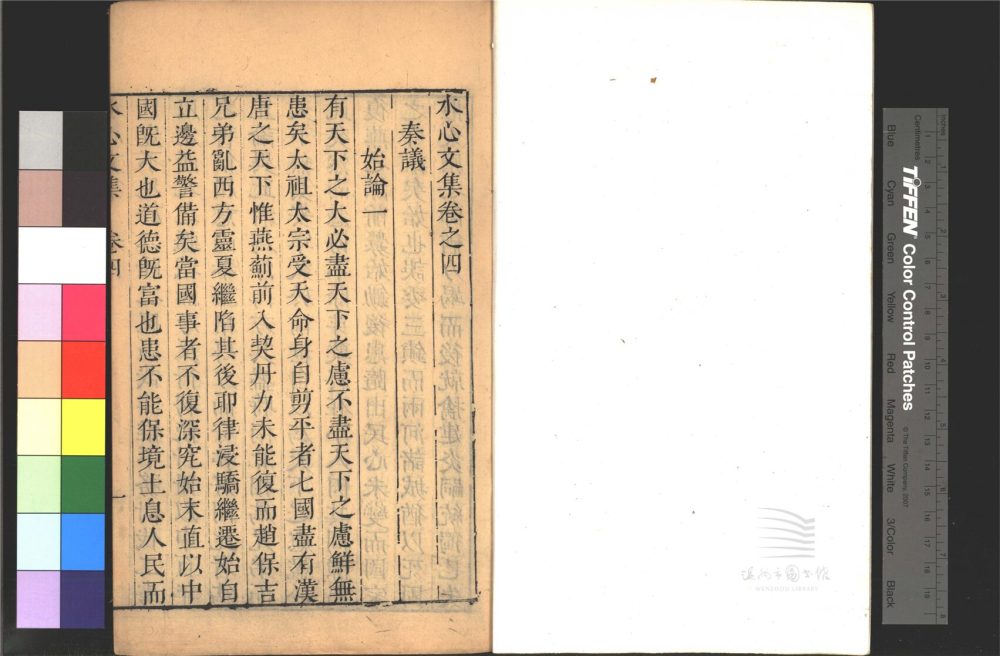 水心文集卷之四
奏議
始論一
有天下之大必盡天下之慮不盡天下之慮鮮無
患矣太祖太宗受天命身自剪平者七國盡有漢
唐之天下惟燕薊前入契丹力未能復而趙保吉
兄弟亂西方靈夏繼陷其後耶律浸驕繼遷始自
立邊益警備矣當國事者不復深究始末直以中
國旣大也道德旣富也患不能保境土息人民而
水心文集 卷四 一
Inches
Centimetres
TIFFEN Color Control Patches
© The Tiffen Company, 2007
Blue
Cyan
Green
Yellow
Red
Magenta
White
3/Color
Black
温州市圖書館
WENZHOU LIBRARY